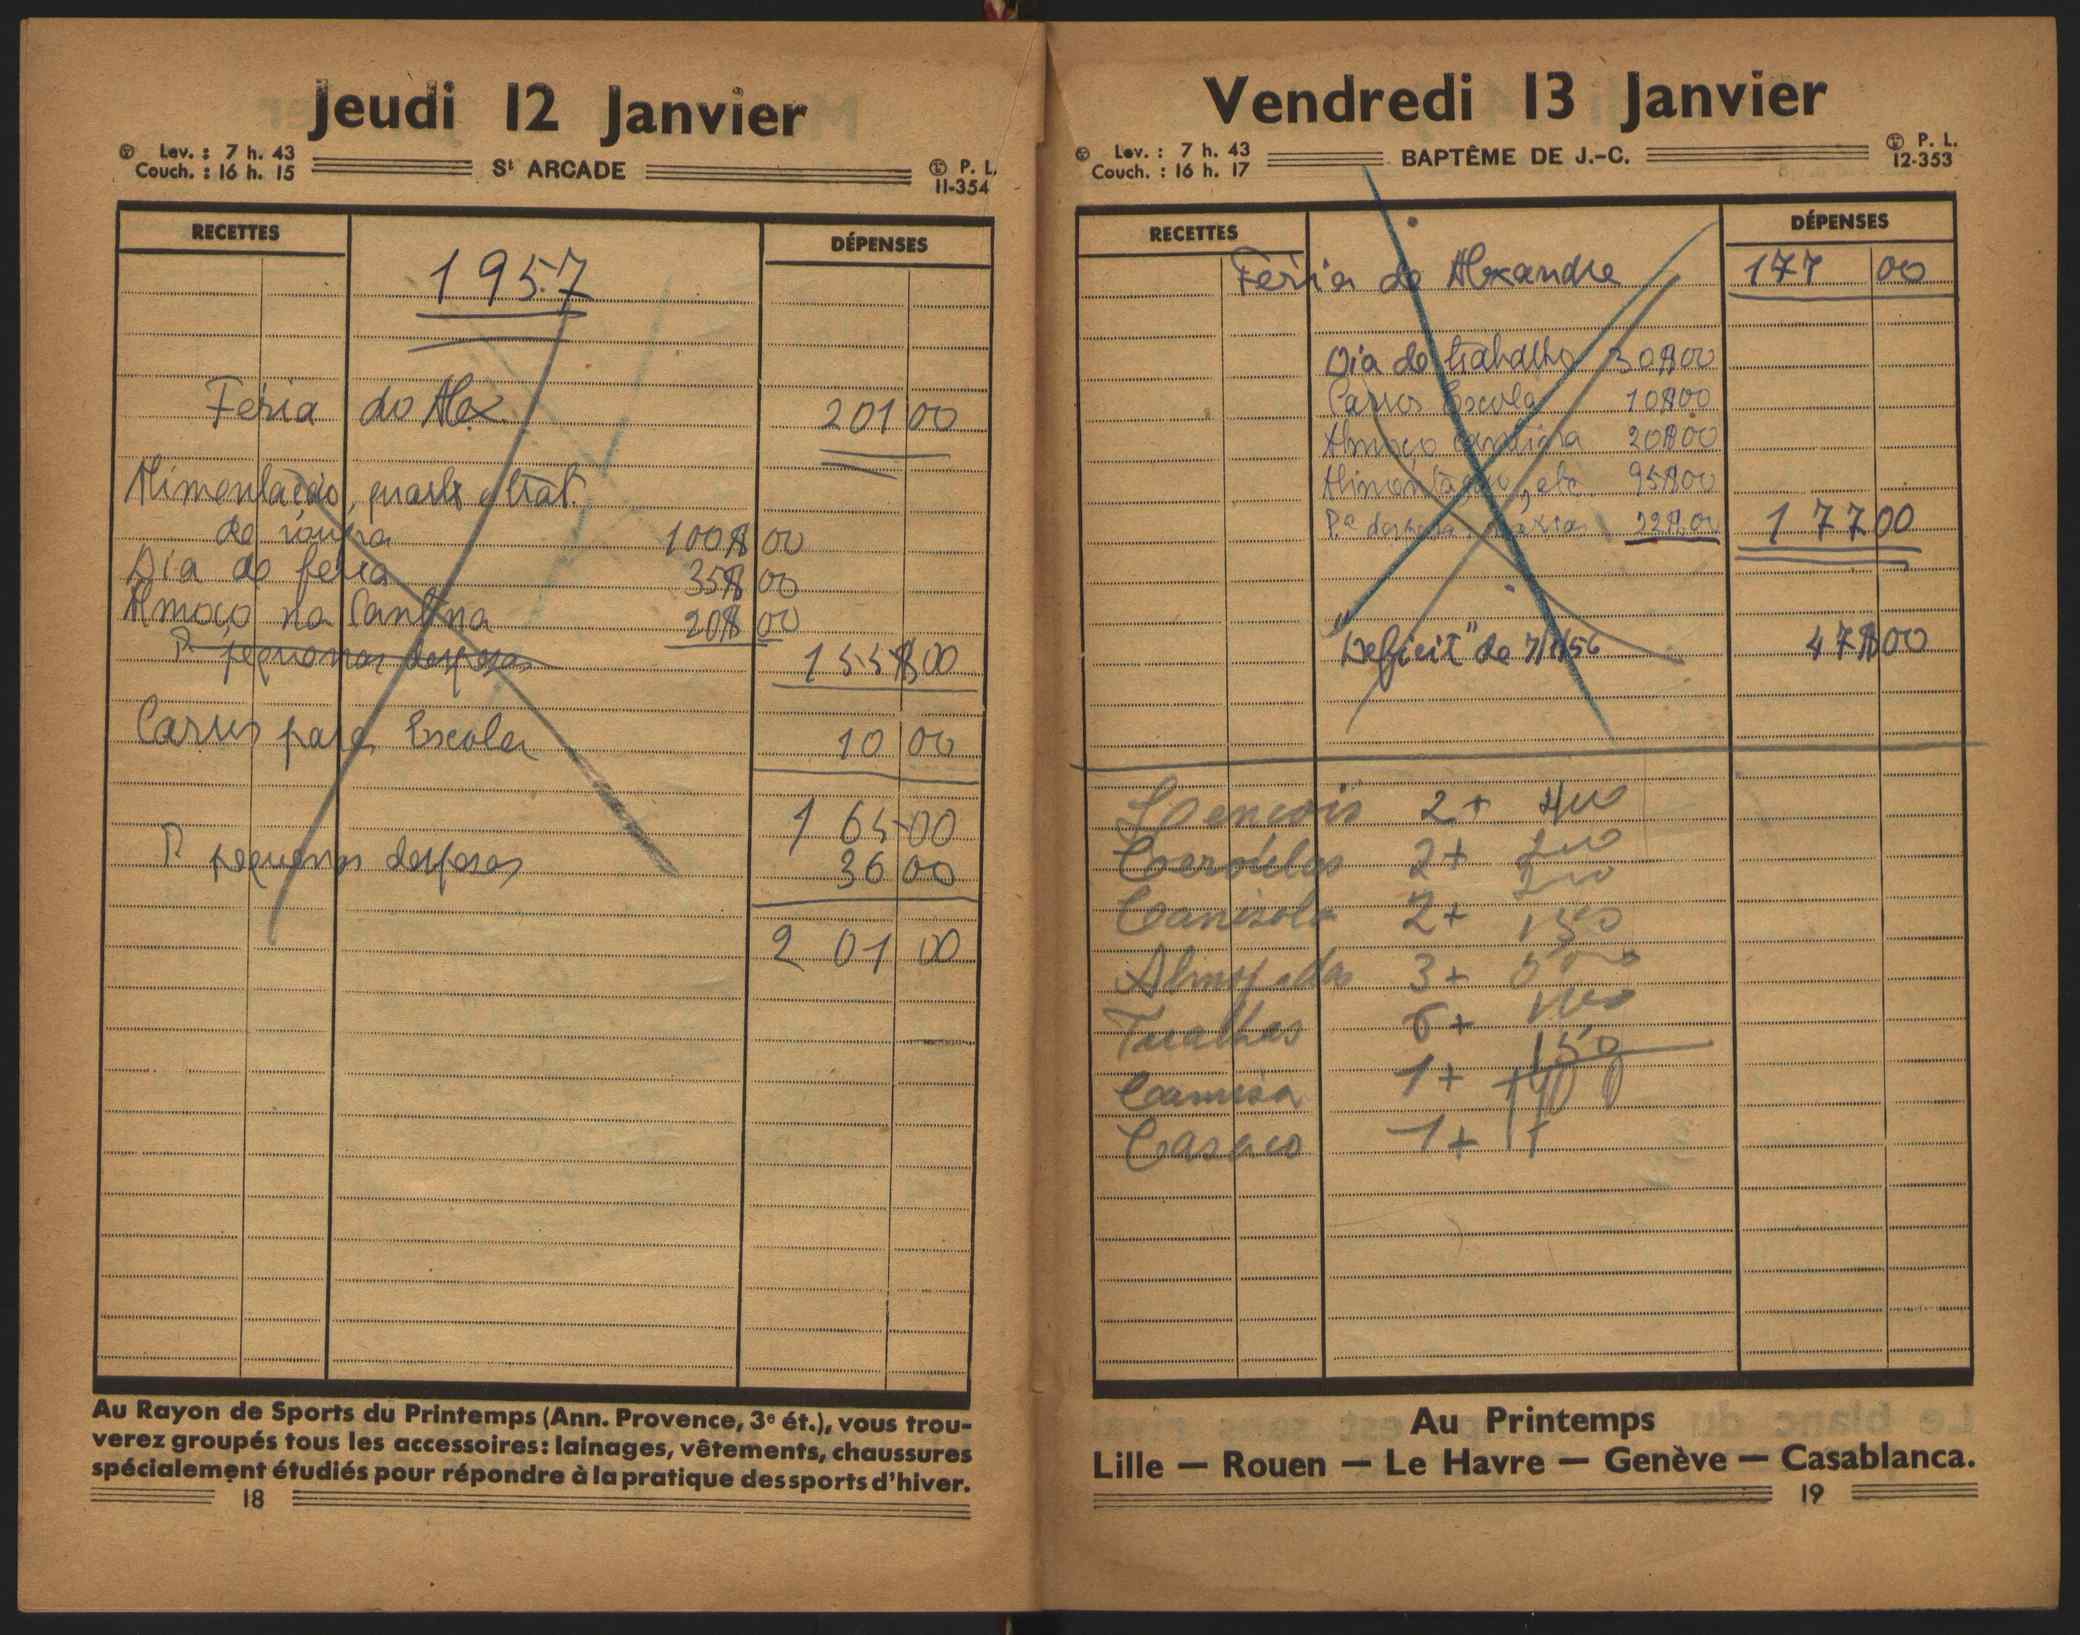 Jeudi 12 Janvier
Lev. : 7 h. 43
Couch. : 16 h. 15
St ARCADE
P. L.
11-354
RECETTES
DÉPENSES
1957
Féria do Alex 201 00
Alimentação, quarto e trat.
de roupa 100$00
Dia de féria 35$00
Almoço na Cantina 20$00
P. pequenas despesas 155$00
Carros para Escola 10 00
165 00
P. pequenas despesas 36 00
201 00
Au Rayon de Sports du Printemps (Ann. Provence, 3e ét.), vous trou-
verez groupés tous les accessoires: lainages, vêtements, chaussures
spécialement étudiés pour répondre à la pratique des sports d'hiver.
18
Vendredi 13 Janvier
Lev. : 7 h. 43
Couch. : 16 h. 17
BAPTÊME DE J.-C.
P. L.
12-353
RECETTES
DÉPENSES
Féria do Alexandre 177 00
Dia de trabalho 30$00
Carros Escola 10$00
Almoço Cantina 20$00
Alimentação, etc. 95$00
Pa despesas 22$00 177 00
"Deficit" de 7/1/56 47$00
Lencois 2+ 400
Ceroulas 2+ 200
Camisola 2+ 200
150
Almofadas 3+
Toalhas 6+
150
Camisa 1+
Casaco 1+
Au Printemps
Lille — Rouen — Le Havre — Genève — Casablanca.
19